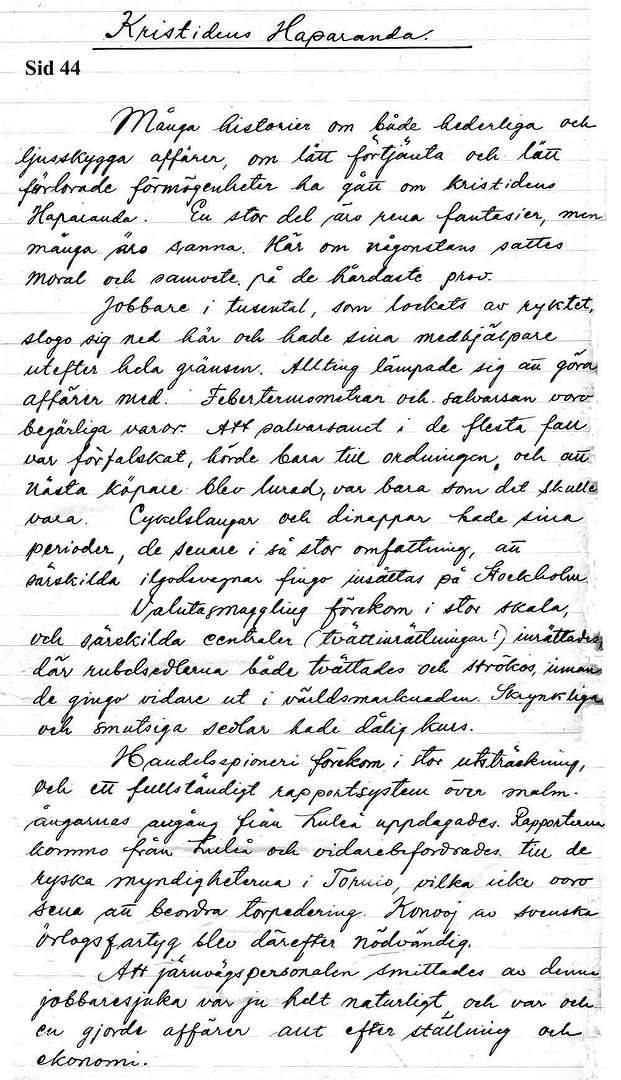 Kristidens Haparanda.
Sid 44
Många historier om både hederliga och
ljusskygga affärer, om lätt förtjänta och lätt
förlorade förmögenheter ha gått om kristidens
Haparanda. En stor del äro rena fantasier, men
många äro sanna. Här om någonstans sattes
moral och samvete på de hårdaste prov.
Jobbare i tusental, som lockats av ryktet,
slogo sig ned här och hade sina medhjälpare
utefter hela gränsen. Allting lämpade sig att göra
affärer med. Febertermometrar och salvarsan voro
begärliga varor. Att salvarsanet i de flesta fall
var förfalskat, hörde bara till ordningen, och att
nästa köpare blev lurad, var bara som det skulle
vara. Cykelslangar och dinappar hade sina
perioder, de senare i så stor omfattning, att
särskilda ilgodsvagnar fingo insättas på Stockholm.
Valutasmuggling förekom i stor skala,
och särskilda centraler (tvättinrättningar!) inrättades,
där rubelsedlarna både tvättades och strökos, innan
de gingo vidare ut i världsmarknaden. Skrynkliga
och smutsiga sedlar hade dålig kurs.
Handelsspioneri förekom i stor utsträckning,
och ett fullständigt rapportsystem över malm-
ångarnas avgång från Luleå uppdagades. Rapporterna
kommo från Luleå och vidarebefordrades till de
ryska myndigheterna i Tornio, vilka icke voro
sena att beordra torpedering. Konvoj av svenska
örlogsfartyg blev därefter nödvändig.
Att järnvägspersonalen smittades av denna
jobbaresjuka var ju helt naturligt, och var och
en gjorde affärer allt efter ställning och
ekonomi.